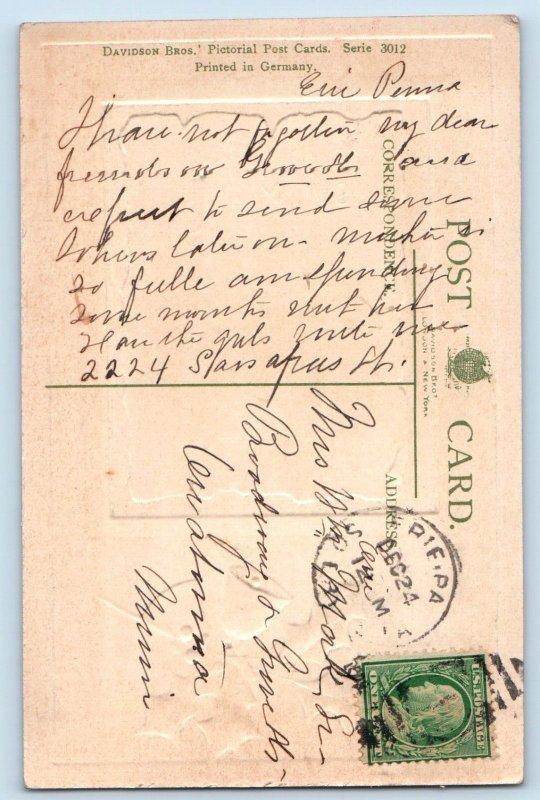 DAVIDSON BROS.' Pictorial Post Cards. Serie 3012
Printed in Germany.
Erie Penna
I have not forgotten my dear
friends on and
expect to send some
others later on. mother is
so feble am spending
some months with her
Have the girls write me
2224 Sassafras St.
CORRESPONDENCE.
POST CARD.
DAVIDSON BROS.
LONDON & NEW YORK
ADDRESS
Mrs Wm Sr
Owatonna
Minn
ERIE, PA
DEC 24
12 M
U.S. POSTAGE
ONE CENT